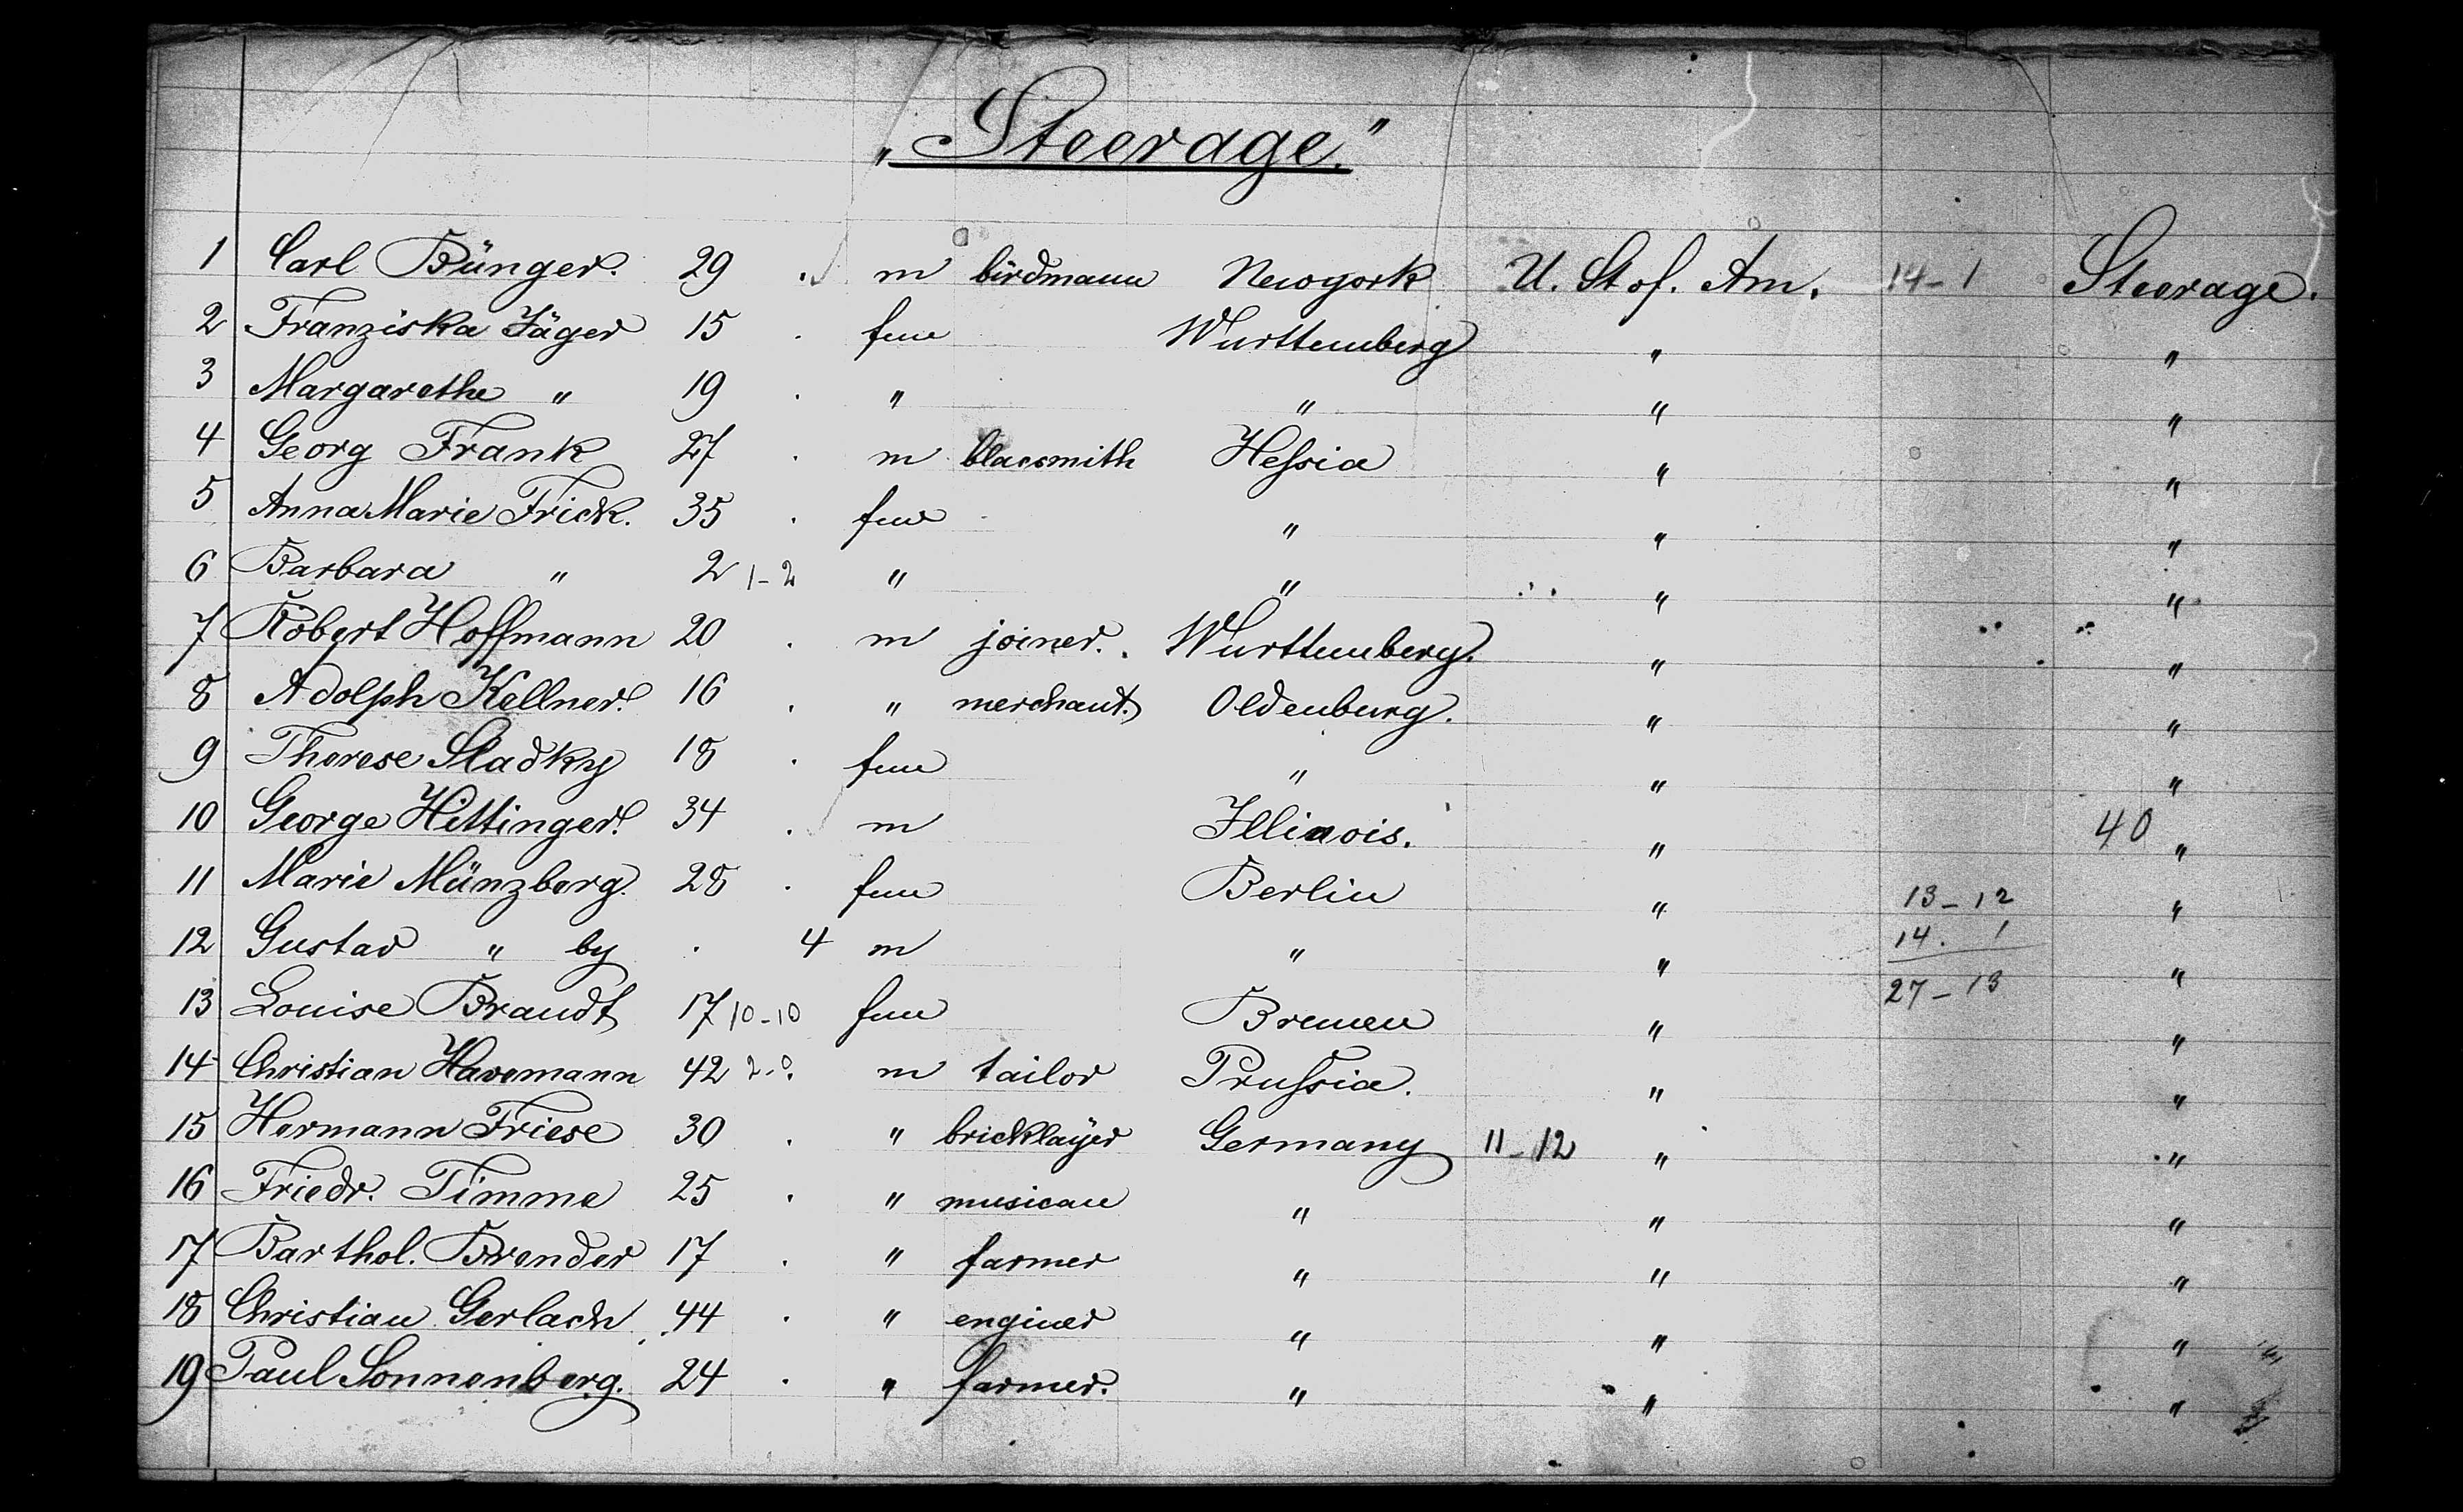 „Steerage."
1 Carl Bünger. 29 m birdmann Newyork U. St of. Am. 14-1 Steerage.
2 Franziska Jäger 15 fem Wurttemberg " "
3 Margarethe " 19 " " " "
4 Georg Frank 27 m blacsmith Hessia " "
5 Anna Marie Frick. 35 fem " " "
6 Barbara " 2 1-2 " " " "
7 Robert Hoffmann 20 m joiner. Wurttemberg. " "
8 Adolph Kellner. 16 " merchant. Oldenburg. " "
9 Therese Sladky 18 fem " " "
10 George Hittinger. 34 m Illinois. " 40 "
11 Marie Münzberg. 28 fem Berlin " 13-12 "
12 Gustav " by 4 m " " 14. 1 "
27-13
13 Louise Brandt 17 10-10 fem Bremen " "
14 Christian Havemann 42 2-0. m tailor Prussia. " "
15 Hermann Friese 30 " bricklayer Germany 11-12 " "
16 Friedr. Timme 25 " musican " " "
17 Barthol. Brender 17 " farmer " " "
18 Christian Gerlach 44 " enginer " " "
19 Paul Sonnenberg. 24 " farmer. " " "